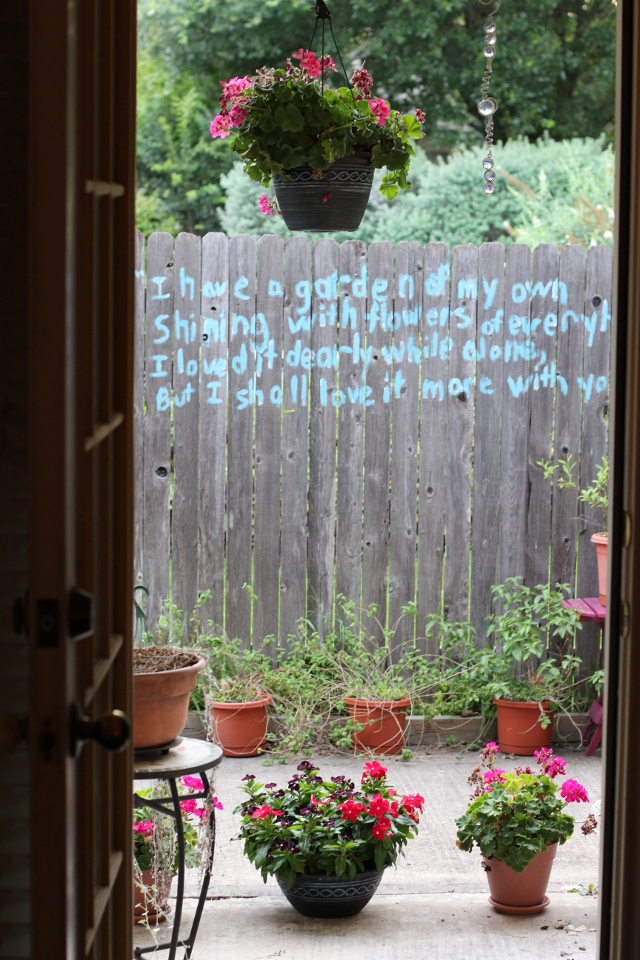 I have a garden of my own
Shining with flowers of every
I loved it dearly while alone,
But I shall love it more with